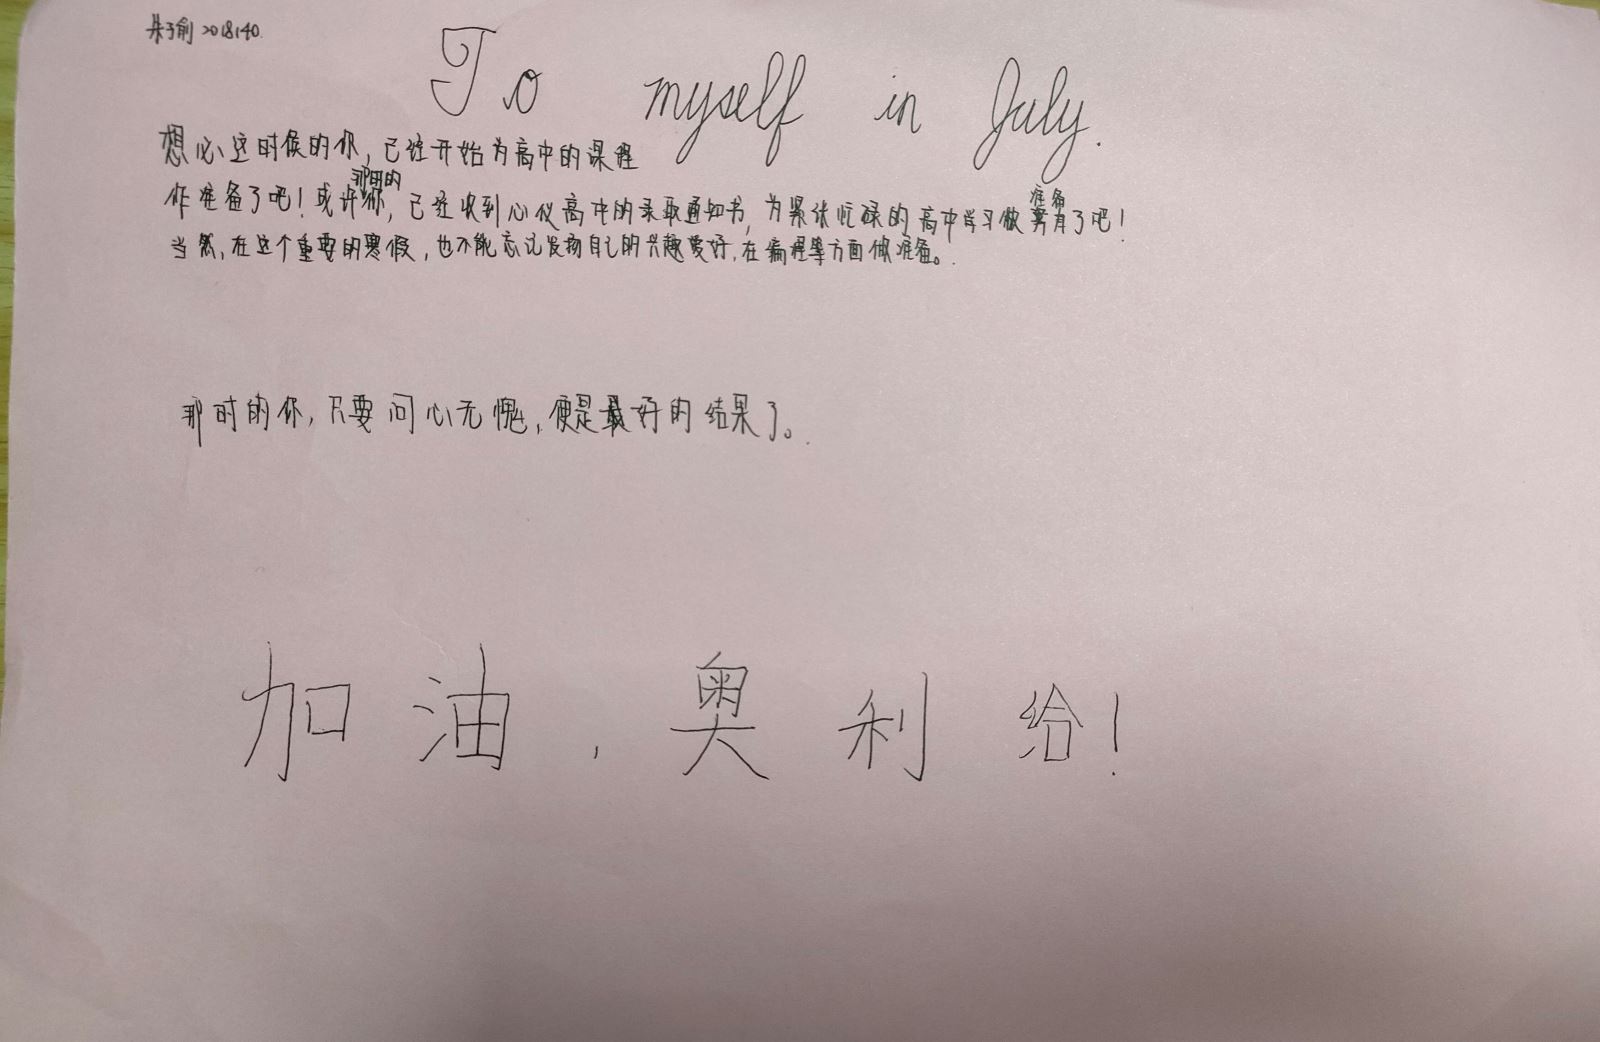 朱子俞 2018140.
To myself in July.
想必这时候的你,已经开始为高中的课程
作准备了吧!或许那时的你,已经收到心仪高中的录取通知书,为紧张忙碌的高中学习做准备了吧!
当然,在这个重要的寒假,也不能忘记发扬自己的兴趣爱好,在编程等方面做准备。
那时的你,只要问心无愧,便是最好的结果了。
加油,奥利给!